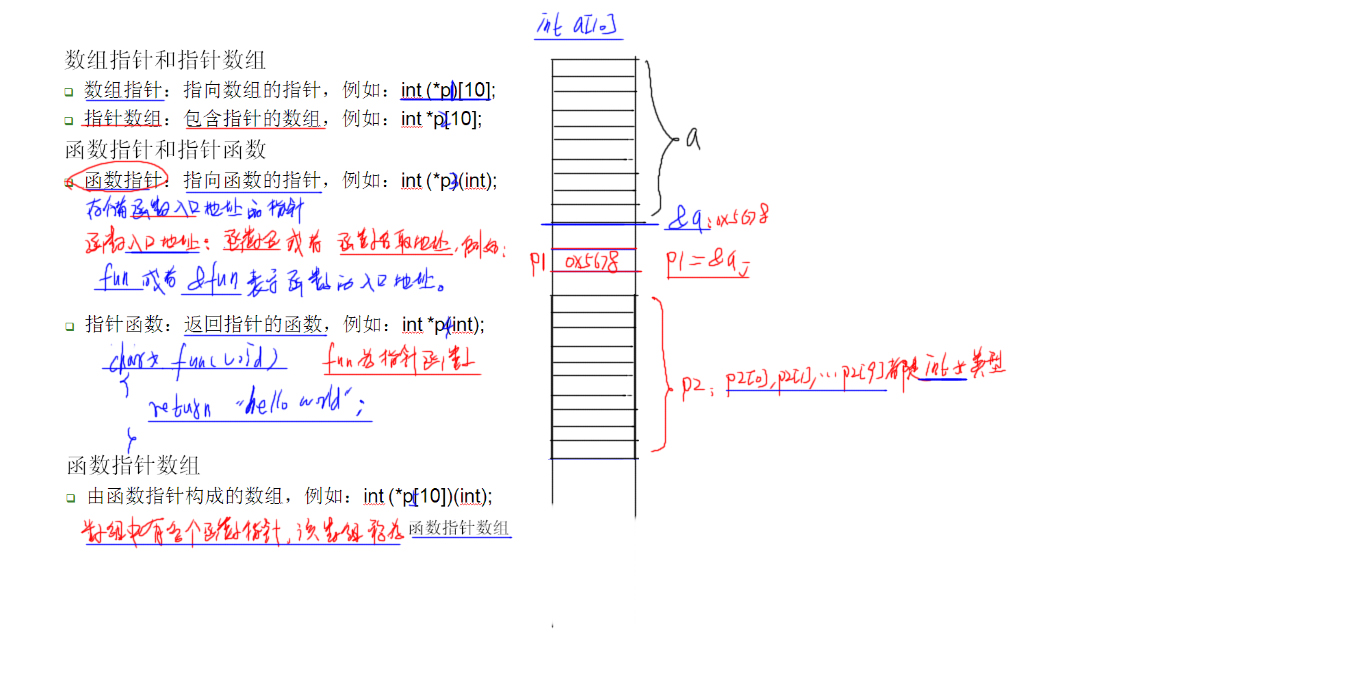 数组指针和指针数组
数组指针：指向数组的指针，例如：int (*p1)[10];
指针数组：包含指针的数组，例如：int *p2[10];
函数指针和指针函数
函数指针：指向函数的指针，例如：int (*p3)(int);
存储函数入口地址的指针
函数入口地址：函数名或者函数名取地址，例如：
fun 或者 &fun 表示函数的入口地址。
指针函数：返回指针的函数，例如：int *p4(int);
char* fun(void) fun为指针函数
{
return "hello world";
}
函数指针数组
由函数指针构成的数组，例如：int (*p[10])(int);
数组中有多个函数指针，该数组称为函数指针数组
int a[10]
a
&a:0x5678
p1 0x5678 p1=&a;
p2: p2[0],p2[1],...p2[9]都是int*类型